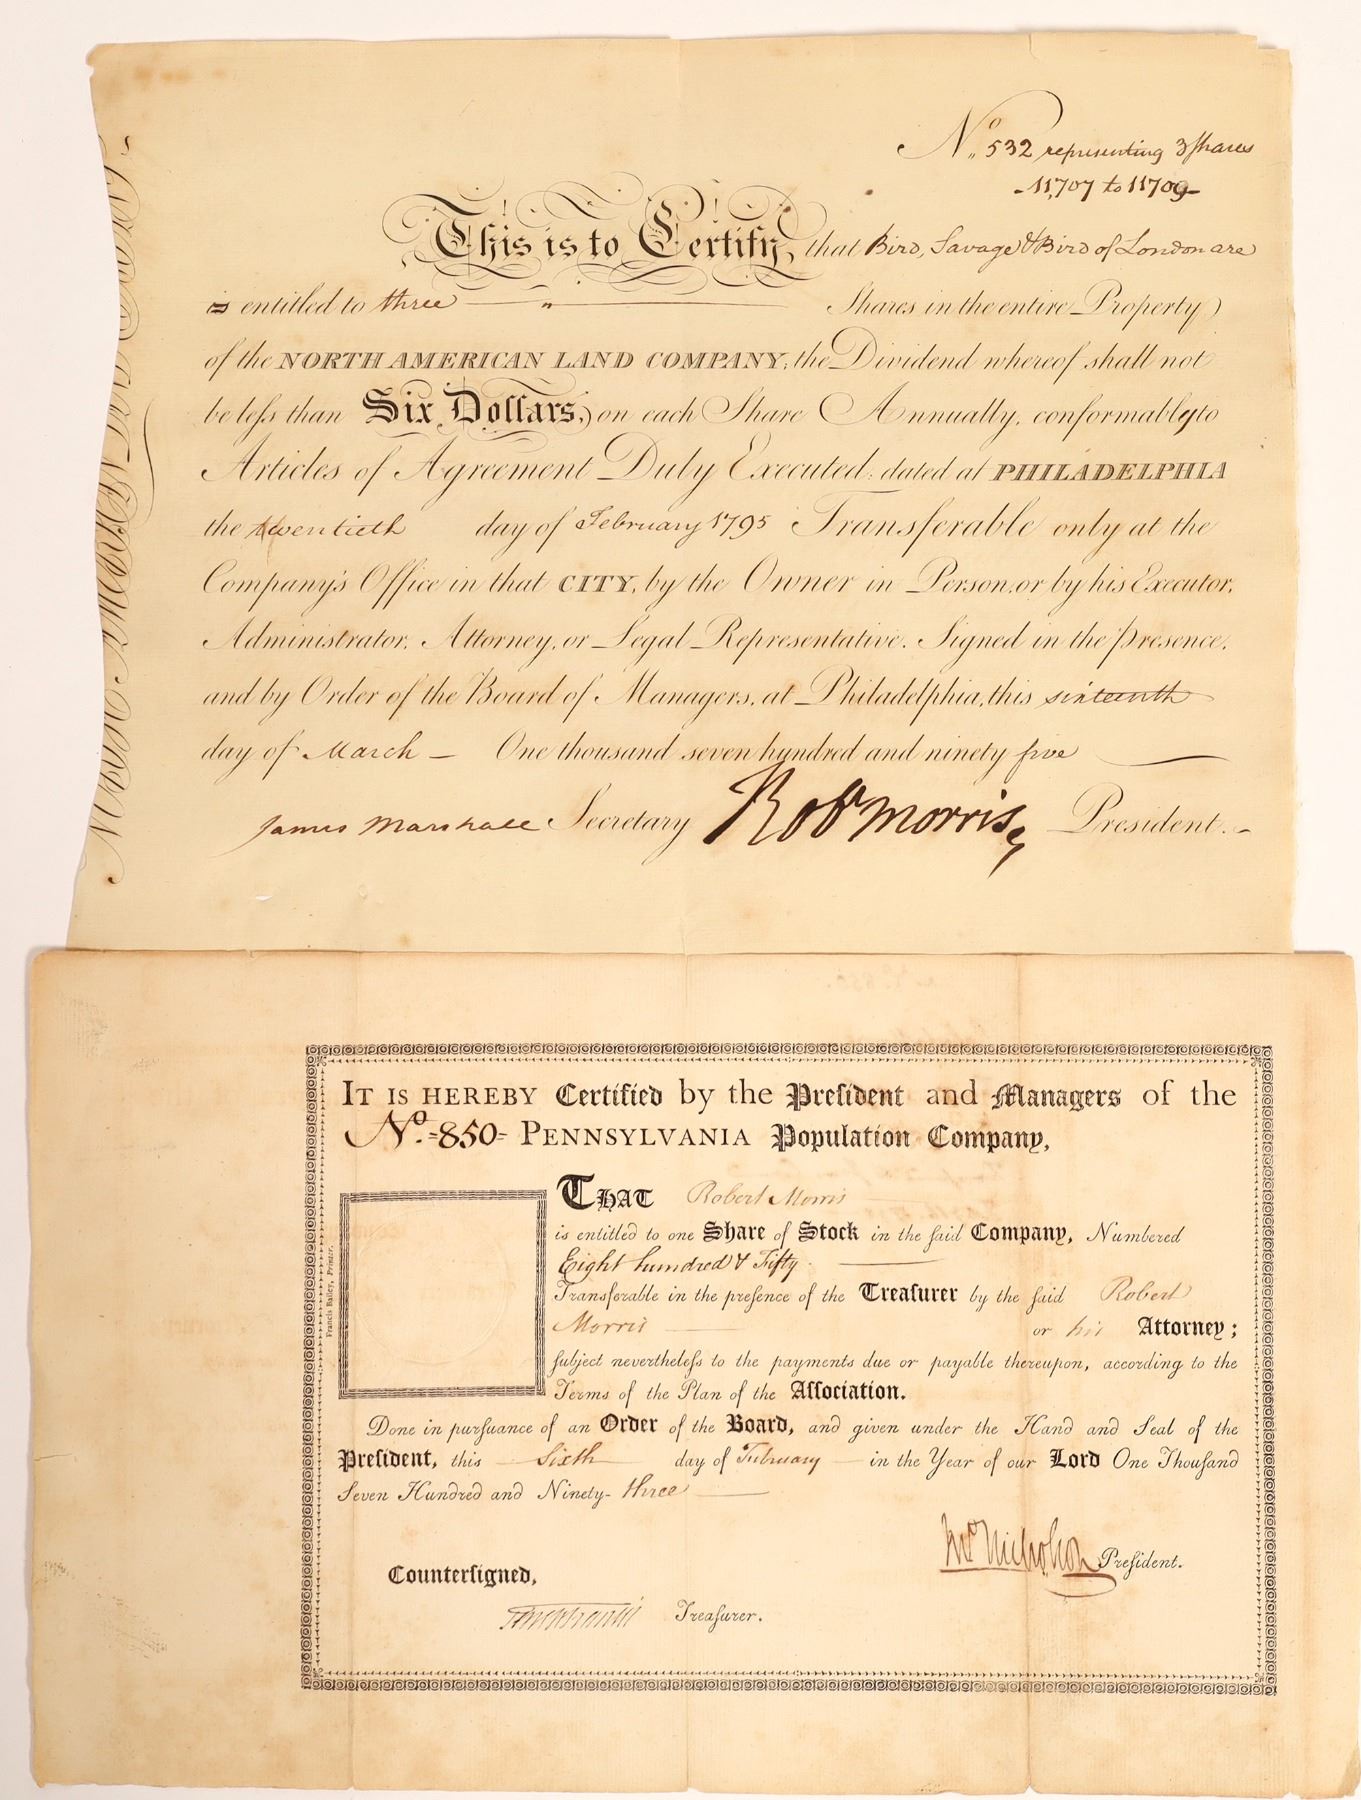 No. 532 representing 3 shares
-11,707 to 11709-
This is to Certify, that Bird, Savage & Bird of London are
is entitled to three — " — Shares in the entire Property
of the NORTH AMERICAN LAND COMPANY; the Dividend whereof shall not
be less than Six Dollars, on each Share Annually, conformably to
Articles of Agreement Duly Executed; dated at PHILADELPHIA
the twentieth day of February 1795 Transferable only at the
Company's Office in that CITY, by the Owner in Person, or by his Executor,
Administrator, Attorney, or Legal Representative. Signed in the presence,
and by Order of the Board of Managers, at Philadelphia, this sixteenth
day of March — One thousand seven hundred and ninety five
James Marshall Secretary Robt Morris, President.
IT IS HEREBY Certified by the Preſident and Managers of the
No. =850= PENNSYLVANIA Population Company,
THAT Robert Morris
is entitled to one Share of Stock in the ſaid Company, Numbered
Eight hundred & Fifty
Transferable in the preſence of the Treaſurer by the ſaid Robert
Morris — or his Attorney;
ſubject nevertheleſs to the payments due or payable thereupon, according to the
Terms of the Plan of the Aſſociation.
Francis Bailey, Printer.
Done in purſuance of an Order of the Board, and given under the Hand and Seal of the
Preſident, this Sixth day of February — in the Year of our Lord One Thouſand
Seven Hundred and Ninety- three
Jno Nicholson Preſident.
Counterſigned,
Treaſurer.